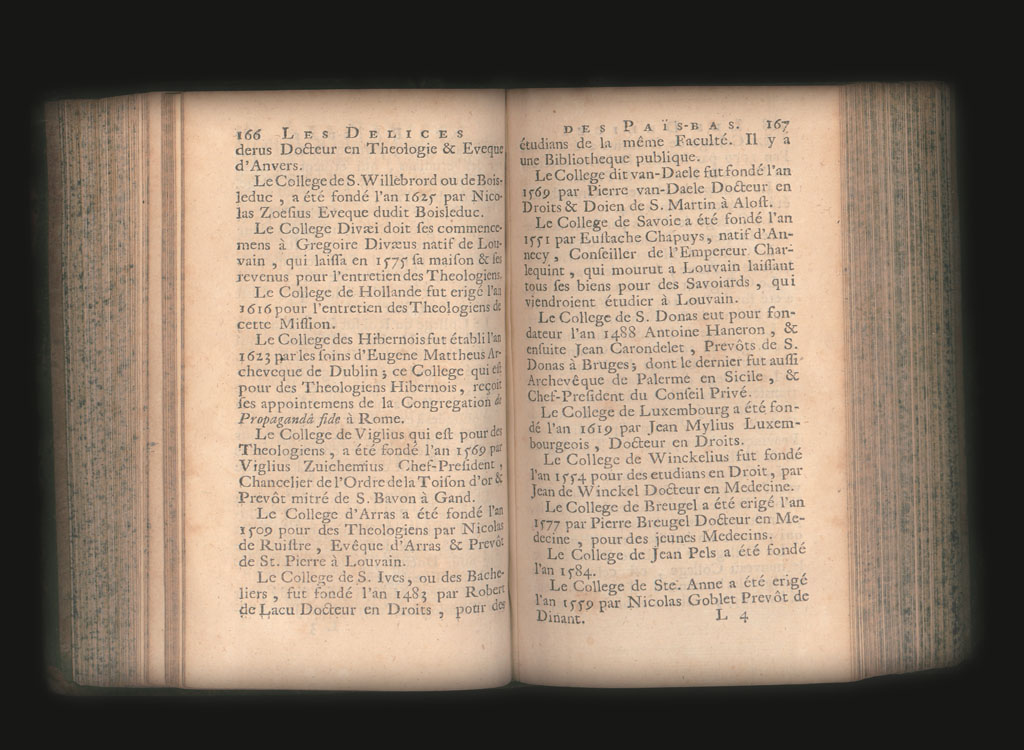 166 LES DELICES
derus Docteur en Theologie & Eveque
d'Anvers.
Le College de S. Willebrord ou de Bois-
leduc, a été fondé l'an 1625 par Nico-
las Zoësius Eveque dudit Boisleduc.
Le College Divæi doit ses commence-
mens à Gregoire Divæus natif de Lou-
vain, qui laissa en 1575 sa maison & ses
revenus pour l'entretien des Theologiens.
Le College de Hollande fut erigé l'an
1616 pour l'entretien des Theologiens de
cette Mission.
Le College des Hibernois fut établi l'an
1623 par les soins d'Eugene Mattheus Ar-
cheveque de Dublin; ce College qui est
pour des Theologiens Hibernois, reçoit
ses appointemens de la Congregation de
Propagandâ fide à Rome.
Le College de Viglius qui est pour des
Theologiens, a été fondé l'an 1569 par
Viglius Zuichemius Chef-President,
Chancelier de l'Ordre de la Toison d'or &
Prevôt mitré de S. Bavon à Gand.
Le College d'Arras a été fondé l'an
1509 pour des Theologiens par Nicolas
de Ruistre, Evêque d'Arras & Prevôt
de St. Pierre à Louvain.
Le College de S. Ives, ou des Bache-
liers, fut fondé l'an 1483 par Robert
de Lacu Docteur en Droits, pour des
DES PAÏS-BAS. 167
étudians de la même Faculté. Il y a
une Bibliotheque publique.
Le College dit van-Daele fut fondé l'an
1569 par Pierre van-Daele Docteur en
Droits & Doien de S. Martin à Alost.
Le College de Savoie a été fondé l'an
1551 par Eustache Chapuys, natif d'An-
necy, Conseiller de l'Empereur Char-
lequint, qui mourut a Louvain laissant
tous ses biens pour des Savoiards, qui
viendroient étudier à Louvain.
Le College de S. Donas eut pour fon-
dateur l'an 1488 Antoine Haneron, &
ensuite Jean Carondelet, Prevôts de S.
Donas à Bruges; dont le dernier fut aussi
Archevêque de Palerme en Sicile, &
Chef-President du Conseil Privé.
Le College de Luxembourg a été fon-
dé l'an 1619 par Jean Mylius Luxem-
bourgeois, Docteur en Droits.
Le College de Winckelius fut fondé
l'an 1554 pour des etudians en Droit, par
Jean de Winckel Docteur en Medecine.
Le College de Breugel a été erigé l'an
1577 par Pierre Breugel Docteur en Me-
decine, pour des jeunes Medecins.
Le College de Jean Pels a été fondé
l'an 1584.
Le College de Ste. Anne a été erigé
l'an 1559 par Nicolas Goblet Prevôt de
Dinant.
L 4